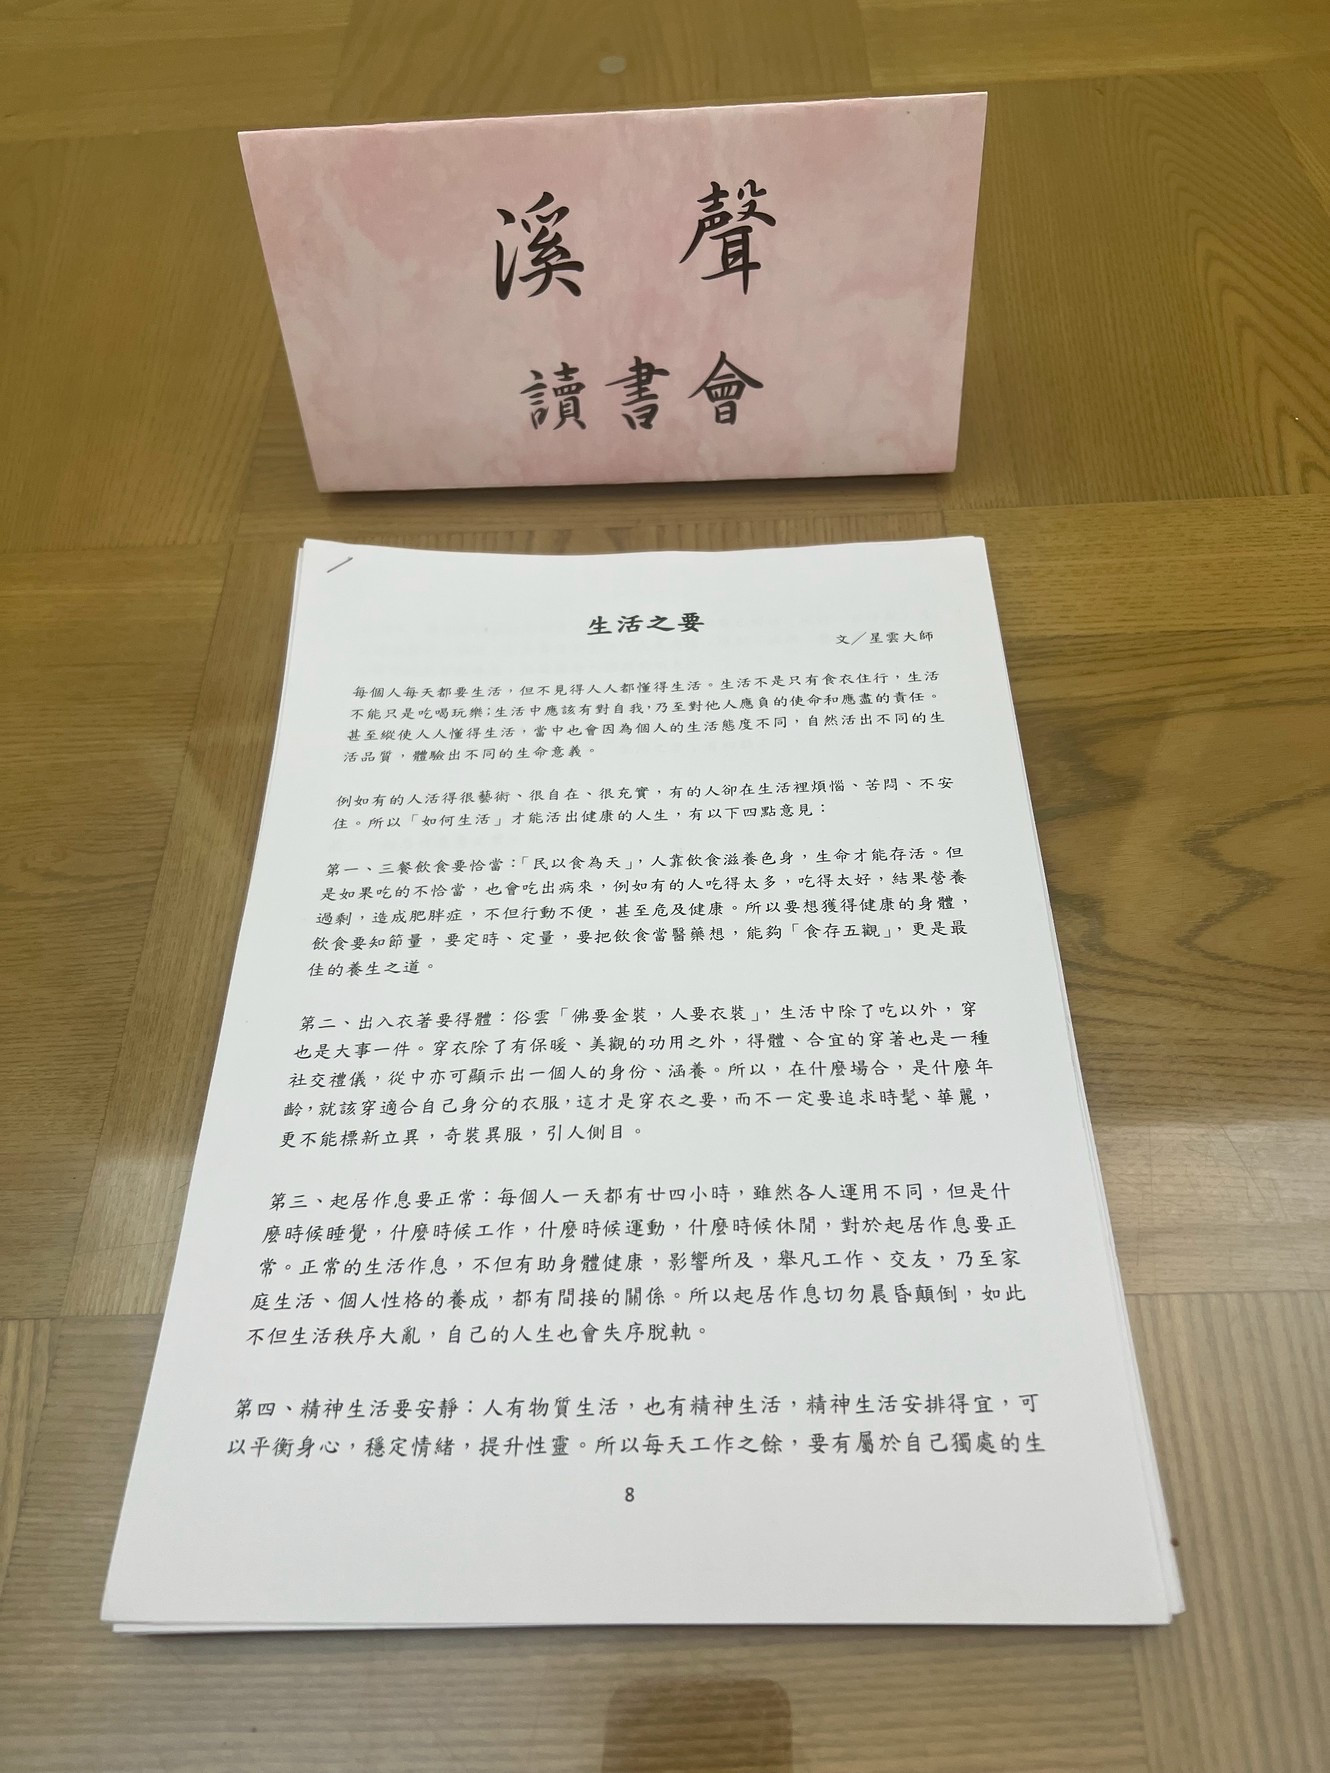 溪聲
讀書會
生活之要
文／星雲大師
每個人每天都要生活，但不見得人人都懂得生活。生活不是只有食衣住行，生活
不能只是吃喝玩樂；生活中應該有對自我，乃至對他人應負的使命和應盡的責任。
甚至縱使人人懂得生活，當中也會因為個人的生活態度不同，自然活出不同的生
活品質，體驗出不同的生命意義。
例如有的人活得很藝術、很自在、很充實，有的人卻在生活裡煩惱、苦悶、不安
住。所以「如何生活」才能活出健康的人生，有以下四點意見：
第一、三餐飲食要恰當：「民以食為天」，人靠飲食滋養色身，生命才能存活。但
是如果吃的不恰當，也會吃出病來，例如有的人吃得太多，吃得太好，結果營養
過剩，造成肥胖症，不但行動不便，甚至危及健康。所以要想獲得健康的身體，
飲食要知節量，要定時、定量，要把飲食當醫藥想，能夠「食存五觀」，更是最
佳的養生之道。
第二、出入衣著要得體：俗雲「佛要金裝，人要衣裝」，生活中除了吃以外，穿
也是大事一件。穿衣除了有保暖、美觀的功用之外，得體、合宜的穿著也是一種
社交禮儀，從中亦可顯示出一個人的身份、涵養。所以，在什麼場合，是什麼年
齡，就該穿適合自己身分的衣服，這才是穿衣之要，而不一定要追求時髦、華麗，
更不能標新立異，奇裝異服，引人側目。
第三、起居作息要正常：每個人一天都有廿四小時，雖然各人運用不同，但是什
麼時候睡覺，什麼時候工作，什麼時候運動，什麼時候休閒，對於起居作息要正
常。正常的生活作息，不但有助身體健康，影響所及，舉凡工作、交友，乃至家
庭生活、個人性格的養成，都有間接的關係。所以起居作息切勿晨昏顛倒，如此
不但生活秩序大亂，自己的人生也會失序脫軌。
第四、精神生活要安靜：人有物質生活，也有精神生活，精神生活安排得宜，可
以平衡身心，穩定情緒，提升性靈。所以每天工作之餘，要有屬於自己獨處的生
8